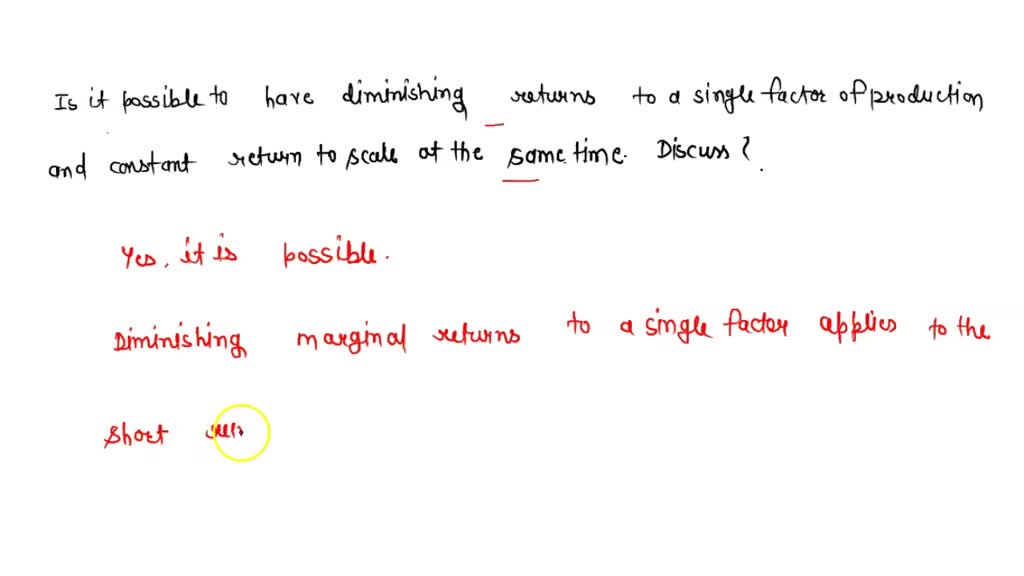 Is it possible to have diminishing returns to a single factor of production
and constant return to scale at the same time. Discuss?.
Yes, it is possible.
Diminishing marginal returns to a single factor applies to the
Short run